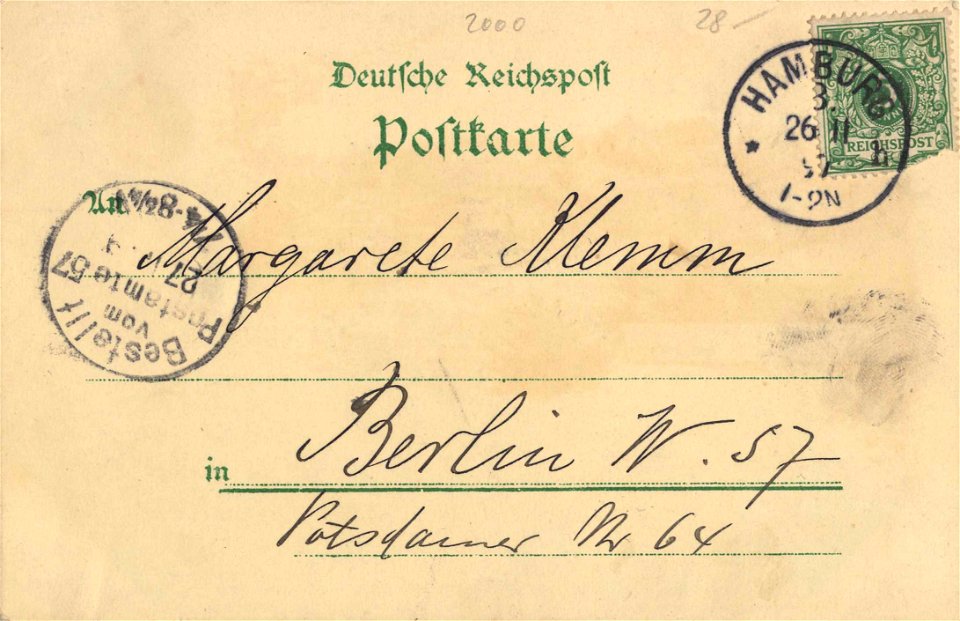 2000 28-
Deutsche Reichspost
Postkarte
HAMBURG
3.
26 11
97
1-2N
REICHSPOST
An Margarete Klemm
Bestellt
vom
Postamte 57
27
in Berlin W. 57
Potsdamer Nr 64